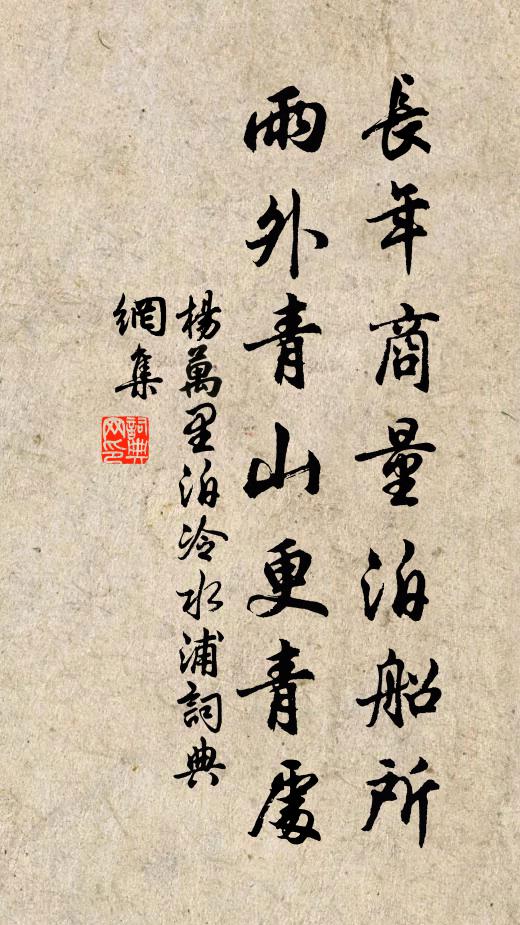 長年商量泊船所
雨外青山更青處
楊萬里泊冷水浦詞典
網集
詞典
网印